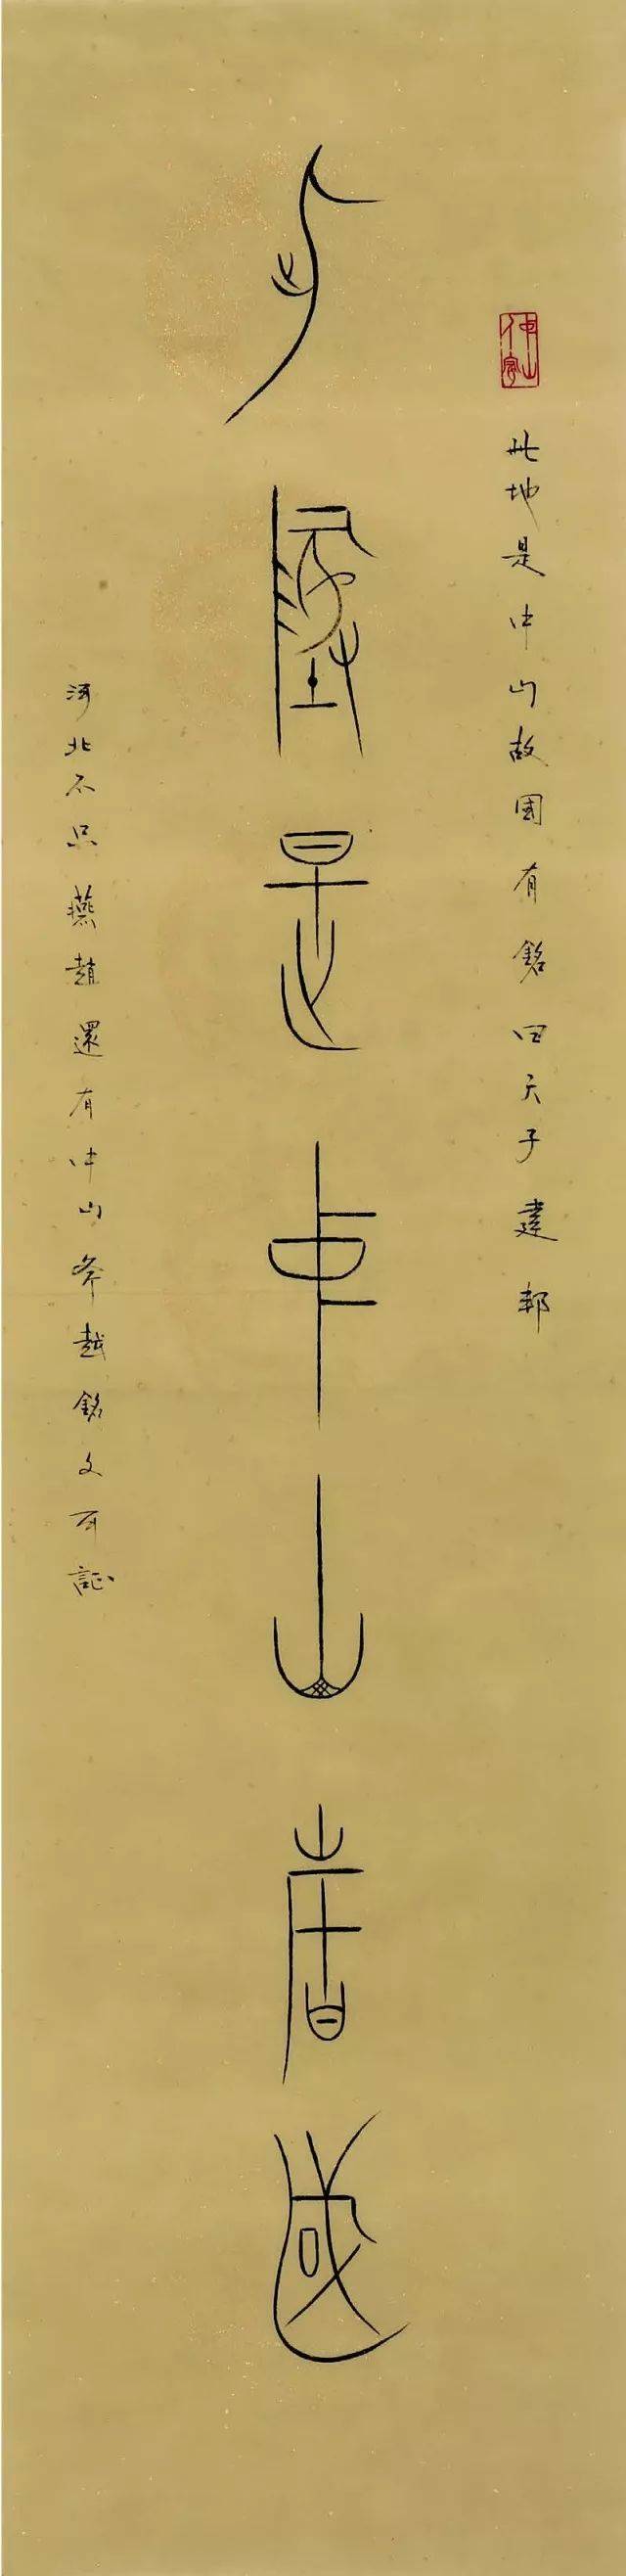 此地是中山故國有銘曰天子建邦
此地是中山故國
河北不只燕趙還有中山斧越銘文可証